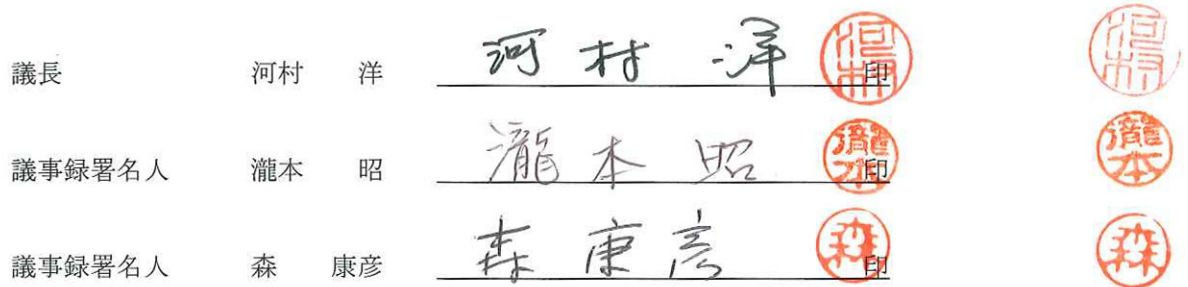 議長 河村 洋 河村 洋 印 河村 河村
議事録署名人 瀧本 昭 瀧本 昭 印 瀧本 瀧本
議事録署名人 森 康彦 森 康彦 印 森 森